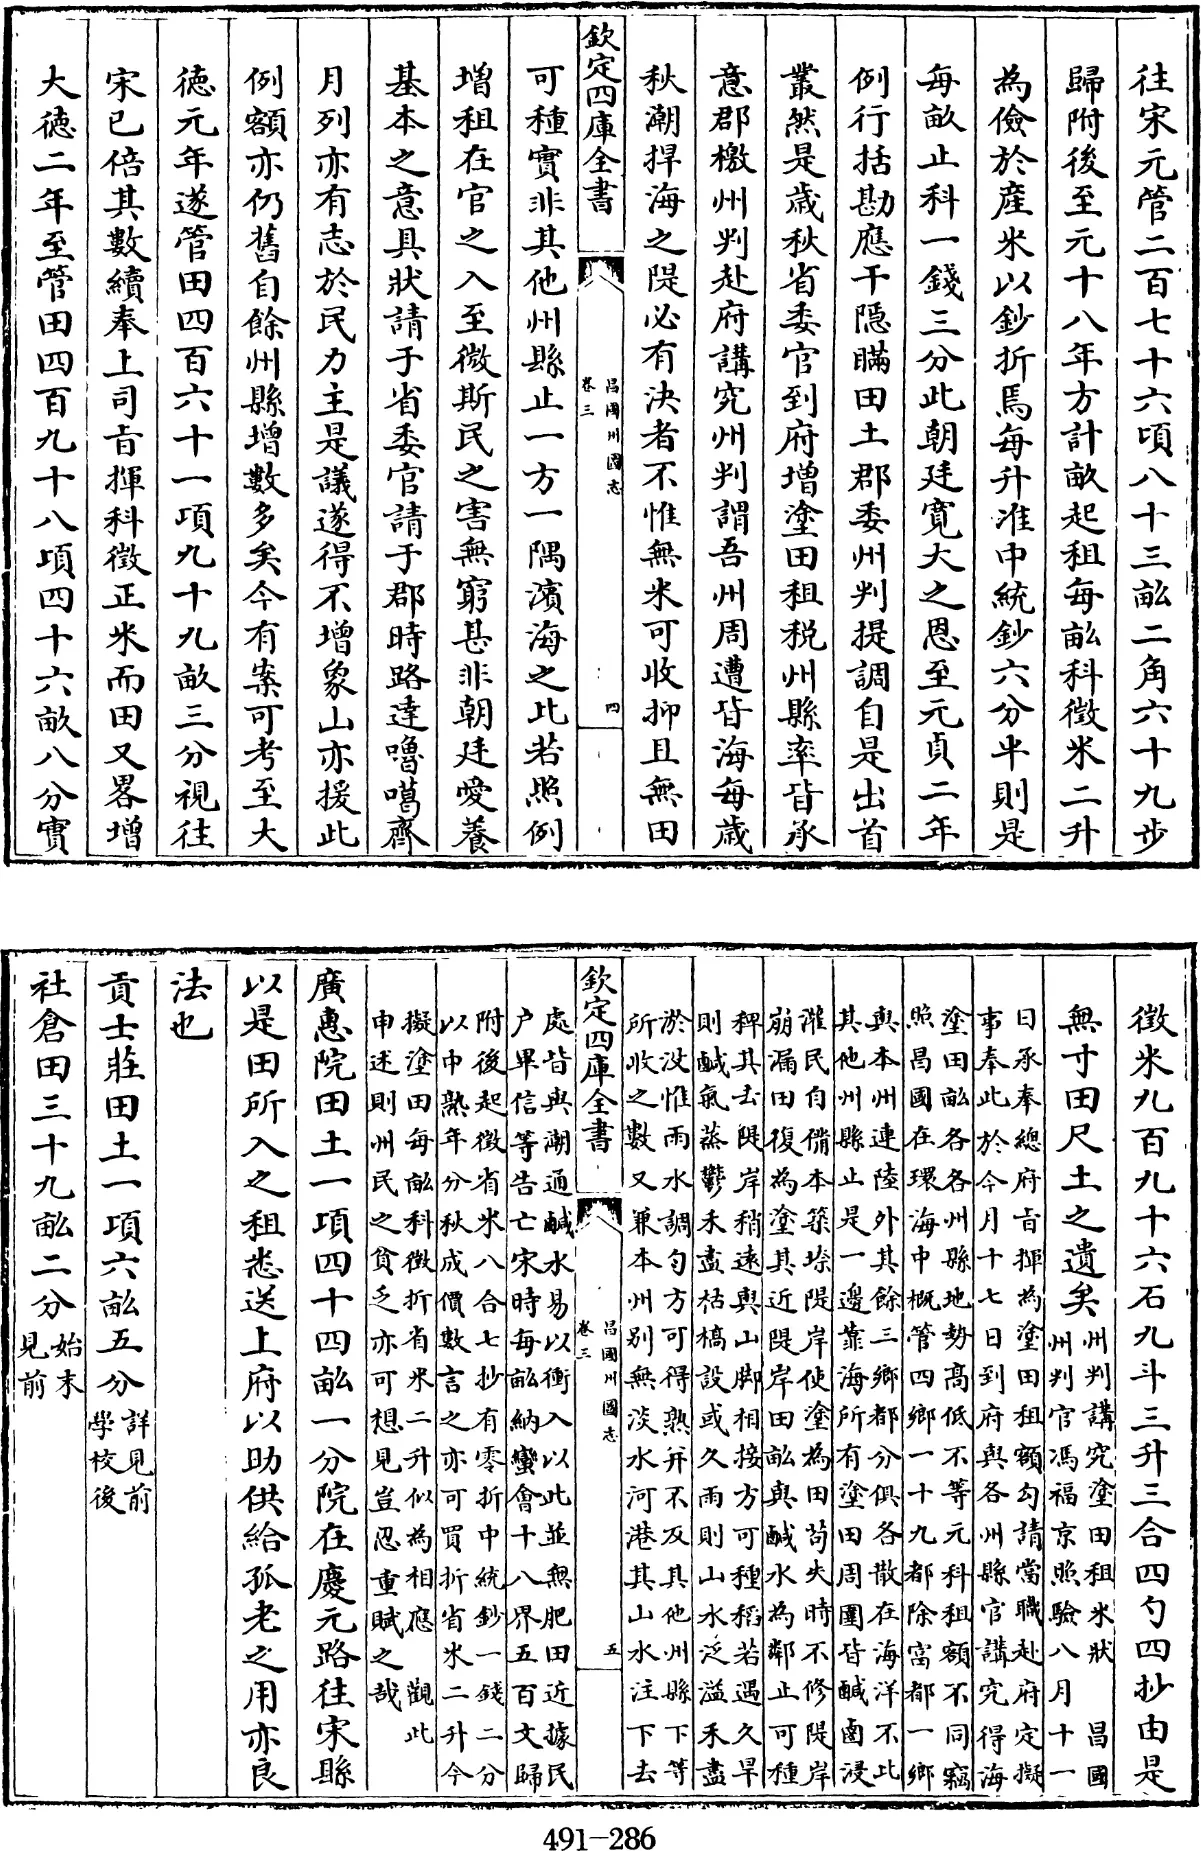 往宋元管二百七十六頃八十三畝二角六十九步
歸附後至元十八年方計畝起租每畝科徵米二升
為儉於產米以鈔折焉每升准中統鈔六分半則是
每畝止科一錢三分此朝廷寬大之恩至元貞二年
例行括勘應干隱瞞田土郡委州判提調自是出首
叢然是歲秋省委官到府增塗田租稅州縣率皆承
意郡檄州判赴府講究州判謂吾州周遭皆海每歲
秋潮捍海之隄必有決者不惟無米可收抑且無田
欽定四庫全書
昌國州圖志
卷三
四
可種實非其他州縣止一方一隅濱海之比若照例
增租在官之入至微斯民之害無窮甚非朝廷愛養
基本之意具狀請于省委官請于郡時路達嚕噶齊
月列亦有志於民力主是議遂得不增象山亦援此
例額亦仍舊自餘州縣增數多矣今有案可考至大
德元年遂管田四百六十一項九十九畝三分視往
宋已倍其數續奉上司㫖揮科徵正米而田又畧增
大德二年至管田四百九十八項四十六畝八分實
徵米九百九十六石九斗三升三合四勺四抄由是
無寸田尺土之遺矣
州判講究塗田租米狀　昌國
州判官馮福京照驗八月十一
日承奉總府㫖揮為塗田租額勾請當職赴府定擬
事奉此於今月十七日到府與各州縣官講究得海
塗田畝各各州縣地勢高低不等元科租額不同竊
照昌國在環海中概管四鄉一十九都除富都一鄉
與本州連陸外其餘三鄉都分俱各散在海洋不比
其他州縣止是一邊靠海所有塗田周圍皆鹹鹵浸
灌民自備本築捺隄岸使塗為田苟失時不修隄岸
崩漏田復為塗其近隄岸田畝與鹹水為鄰止可種
稗其去隄岸稍遠與山脚相接方可種稻若遇久旱
則鹹氣蒸鬱禾盡枯槁設或久雨則山水泛溢禾盡
淤没惟雨水調勻方可得熟并不及其他州縣下等
所收之數又兼本州别無淡水河港其山水注下去
欽定四庫全書
昌國州圖志
卷三
五
處皆與潮通鹹水易以衝入以此並無肥田近據民
户畢信等告亡宋時每畝納蠻會十八界五百文歸
附後起徵省米八合七抄有零折中統鈔一錢二分
以中熟年分秋成價數言之亦可買折省米二升今
擬塗田每畝科徵折省米二升似為相應　觀此
申述則州民之貧乏亦可想見豈忍重賦之哉
廣惠院田土一項四十四畝一分院在慶元路往宋縣
以是田所入之租悉送上府以助供給孤老之用亦良
法也
貢士莊田土一項六畝五分
詳見前
學校後
社倉田三十九畝二分
始末
見前
491-286